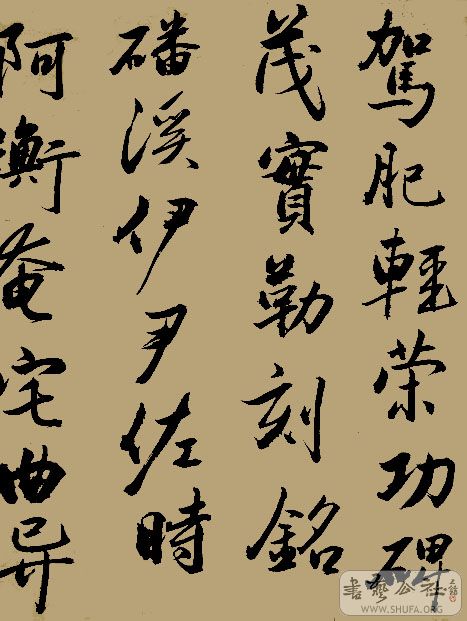 駕肥輕策功碑
茂實勒刻銘
磻溪伊尹佐時
阿衡奄宅曲阜
書藝公社
WWW.SHUFA.ORG